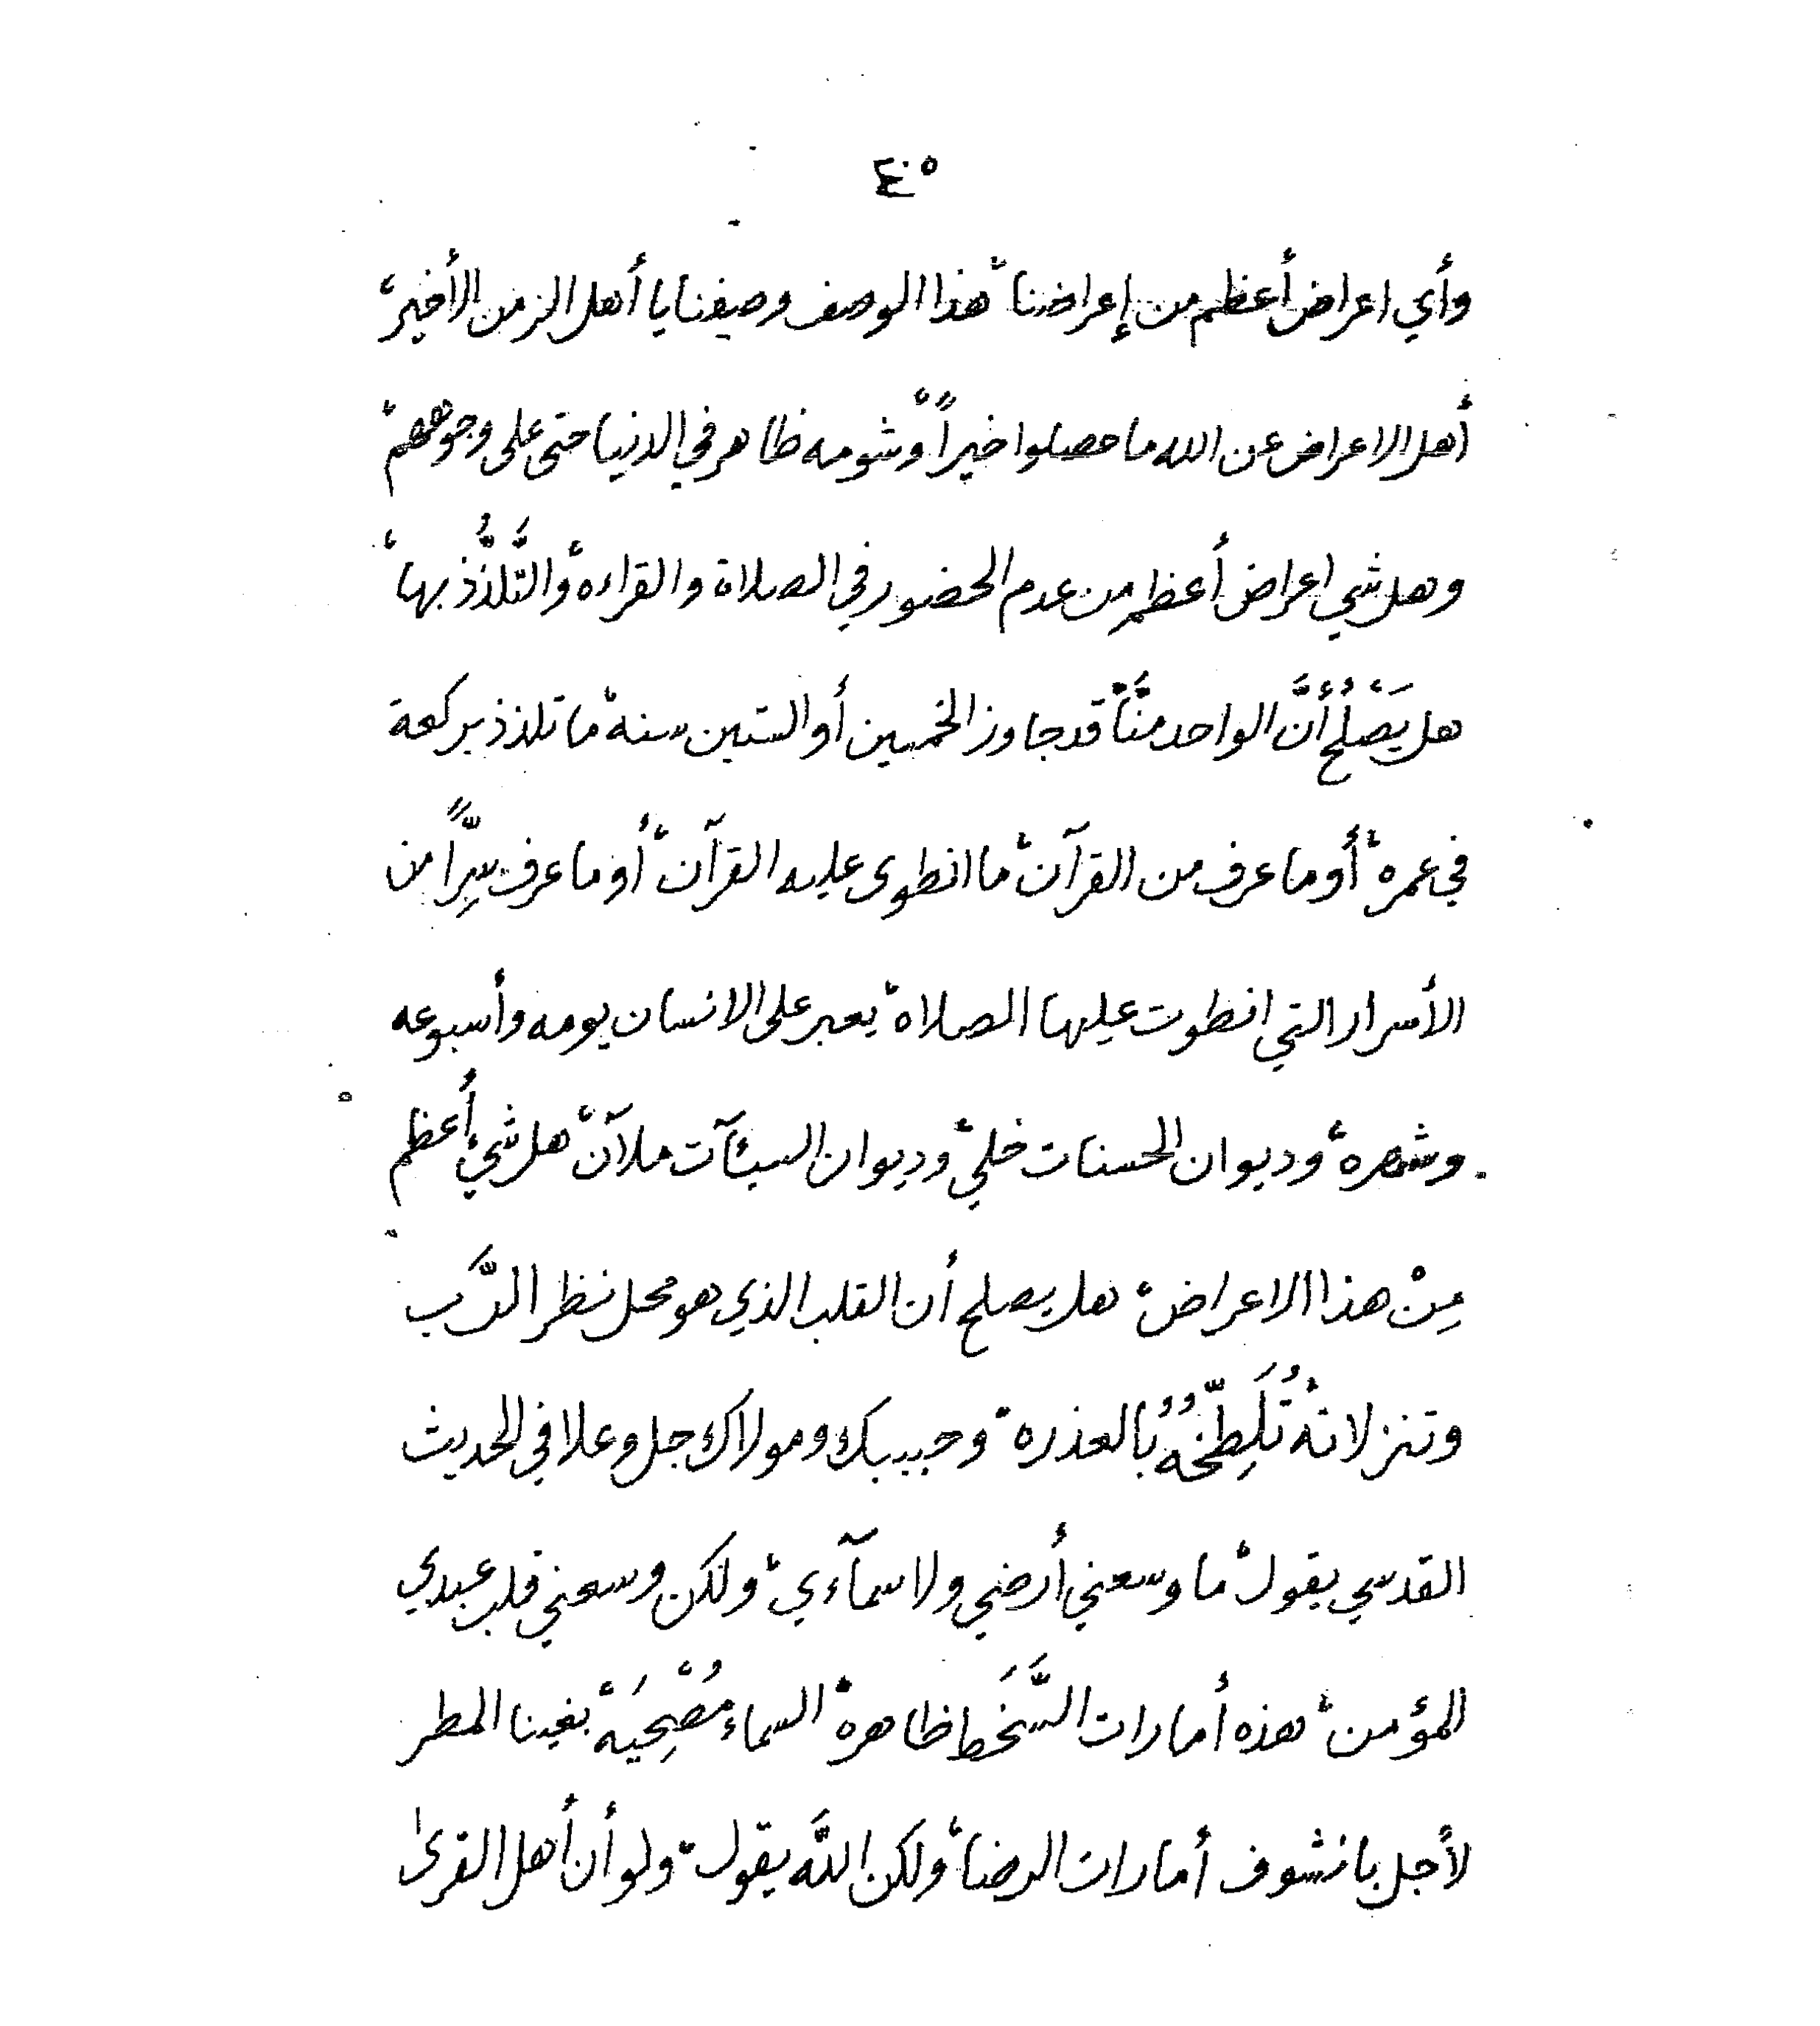 ٤٠٥
وأي اعراض أعظم من إعراضنا، هذا الوصف وصيفنا يا أهل الزمن الأخير،
أهل الاعراض عن الله ما حصلوا خيراً، وشومه ظاهر في الدنيا حتى على وجوههم،
وهل شي اعراض أعظم من عدم الحضور في الصلاة والقراءه، والتَّلذُّذ بها،
هل يَصْلُحُ أنَّ الواحد منَّا قد جاوز الخمسين أو الستين سنه، ما تلذذ بركعة
في عمره، أو ما عرف من القرآن، ما انطوى عليه القرآن، أو ما عرف سِرّاً من
الأسرار التي انطوت عليها الصلاه، يعبر على الانسان يومه وأسبوعه
وشهره، وديوان الحسنات خلي، وديوان السيئآت ملآن، هل شيء أعظم
مِنْ هذا الاعراض، هل يصلح أن القلب الذي هو محل نظر الرَّب
وتنزلاته، تُلَطِّخُهُ بالعذره، وحبيبك ومولاك جل وعلا في الحديث
القدسي يقول، ما وسعني أرضي ولا سمآءي، ولكن وسعني قلب عبدي
المؤمن، هذه أمارات السَّخَط ظاهره، السماء مُصْحِيَه، بغينا المطر
لأجل با نشوف أمارات الرضا، ولكن اللَّه يقول، ولو أن أهل القرىٰ